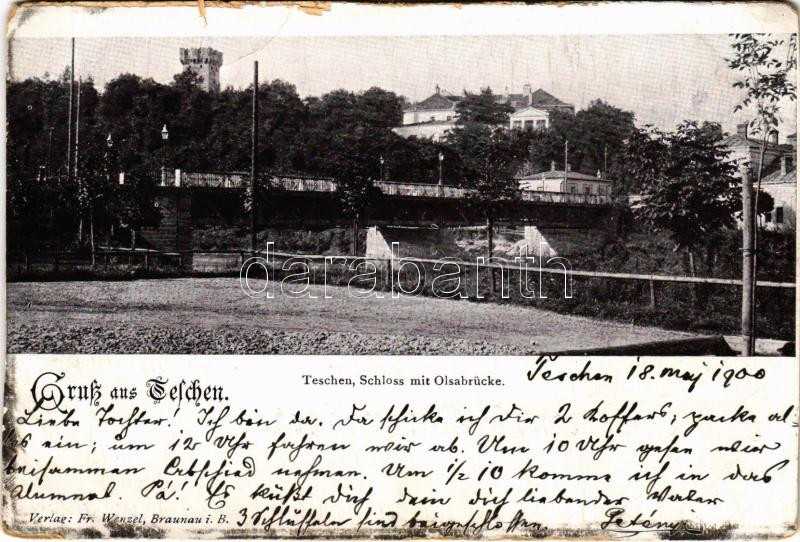 darabanth
Gruß aus Teschen.
Teschen, Schloss mit Olsabrücke.
Teschen 18. maj 1900
Liebe Tochter! Ich bin da. Da schicke ich Dir 2 Koffers, packe al-
les ein; um 12 Uhr fahren wir ab. Um 10 Uhr gehen wir
beisammen Abschied nehmen. Um ½ 10 komme ich in das
Alumnat. Pá! Es küßt Dich dein dich liebender Vater
Verlag: Fr. Wenzel, Braunau i. B. 3 Schlüsseln sind beigeschlossen.